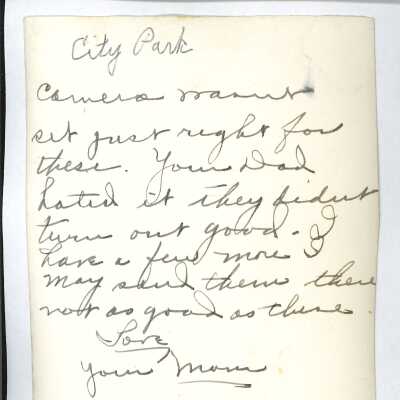 City Park
Camera wasn't
set just right for
these. Your Dad
hated it they didn't
turn out good. I
have a few more I
may send them there
not as good as these.
Love,
Your Mom